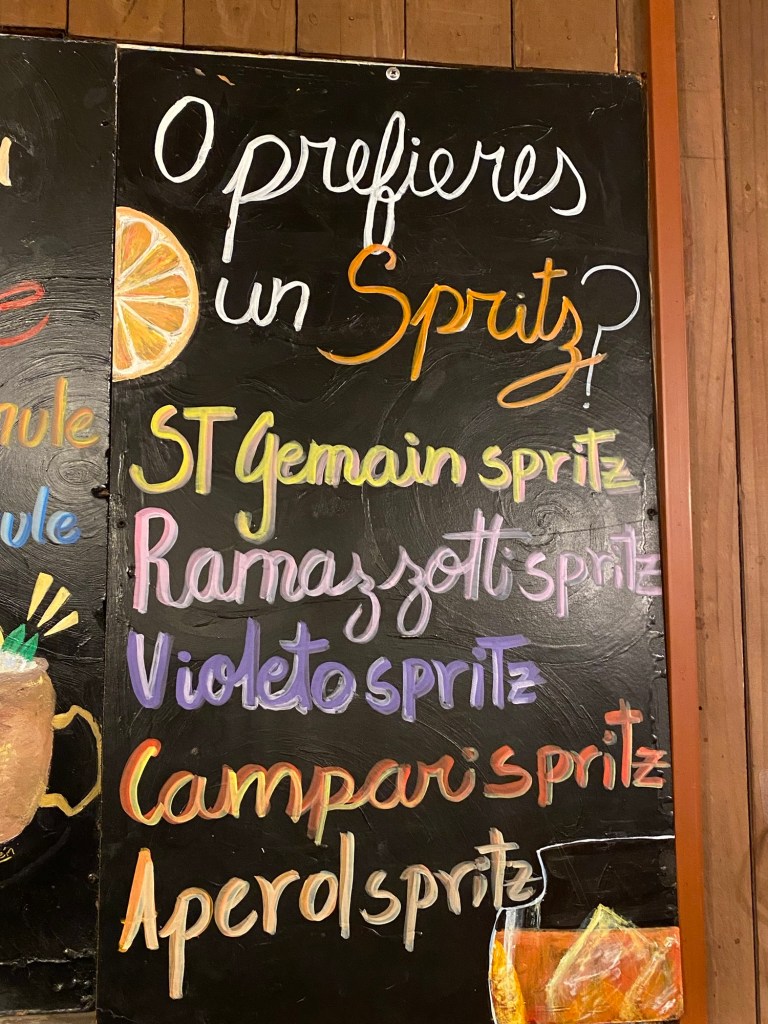 O prefieres
un Spritz?
ST Germain spritz
Ramazzotti spritz
Violeto spritz
Campari spritz
Aperol spritz
mule
ule